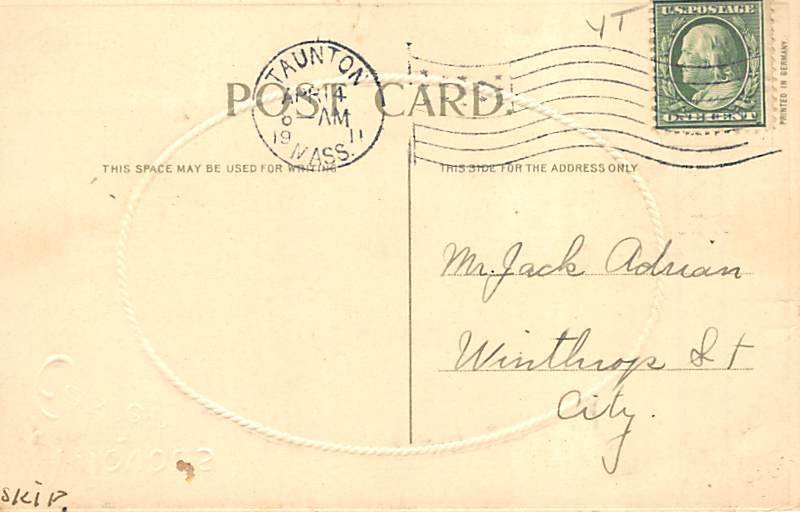 YT
U.S. POSTAGE
ONE CENT
PRINTED IN GERMANY.
TAUNTON
APR 14
6 - AM
19 11
MASS.
POST CARD.
THIS SPACE MAY BE USED FOR WRITING
THIS SIDE FOR THE ADDRESS ONLY
Mr. Jack Adrian
Winthrop St
City.
SKIP.